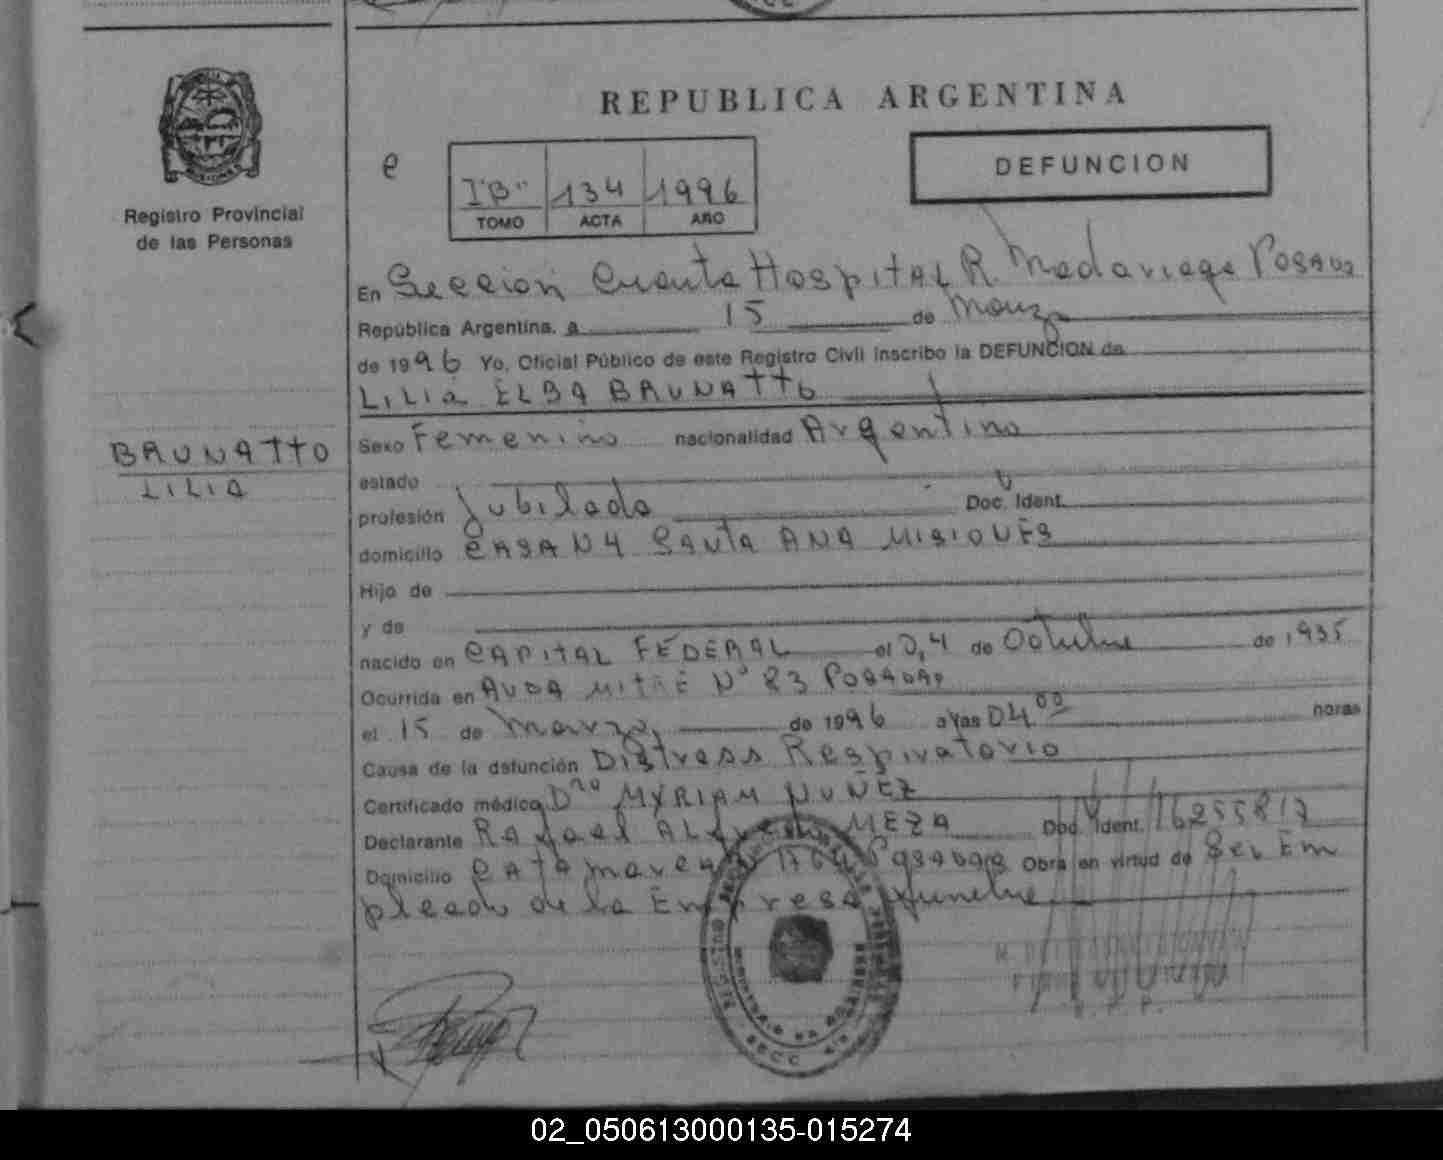 REPUBLICA ARGENTINA
e
I"B" 134 1996
TOMO ACTA AÑO
DEFUNCION
Registro Provincial
de las Personas
En Seccion Cuarta Hospital R. Madariaga Posadas
República Argentina, a 15 de Marzo
de 1996 Yo, Oficial Público de este Registro Civil inscribo la DEFUNCION de
LILIA ELBA BRUNATTO
BRUNATTO
LILIA
Sexo Femenino nacionalidad Argentina
estado
profesión Jubilada Doc. Ident.
domicilio CASA N 4 Santa ANA MISIONES
Hijo de
y de
nacido en CAPITAL FEDERAL el 0,4 de Octubre de 1935
Ocurrida en AVDA MITRE N° 83 POSADAS
el 15 de Marzo de 1996 a las 04 00 horas
Causa de la defunción Distress Respiratorio
Certificado médico Dra MYRIAM NUÑEZ
Declarante Rafael ALfredo MEZA Doc. Ident. 16255817
Domicilio CATAmarca Posadas Obra en virtud de Ser Em
pleado de la Empresa funebre
02_050613000135-015274